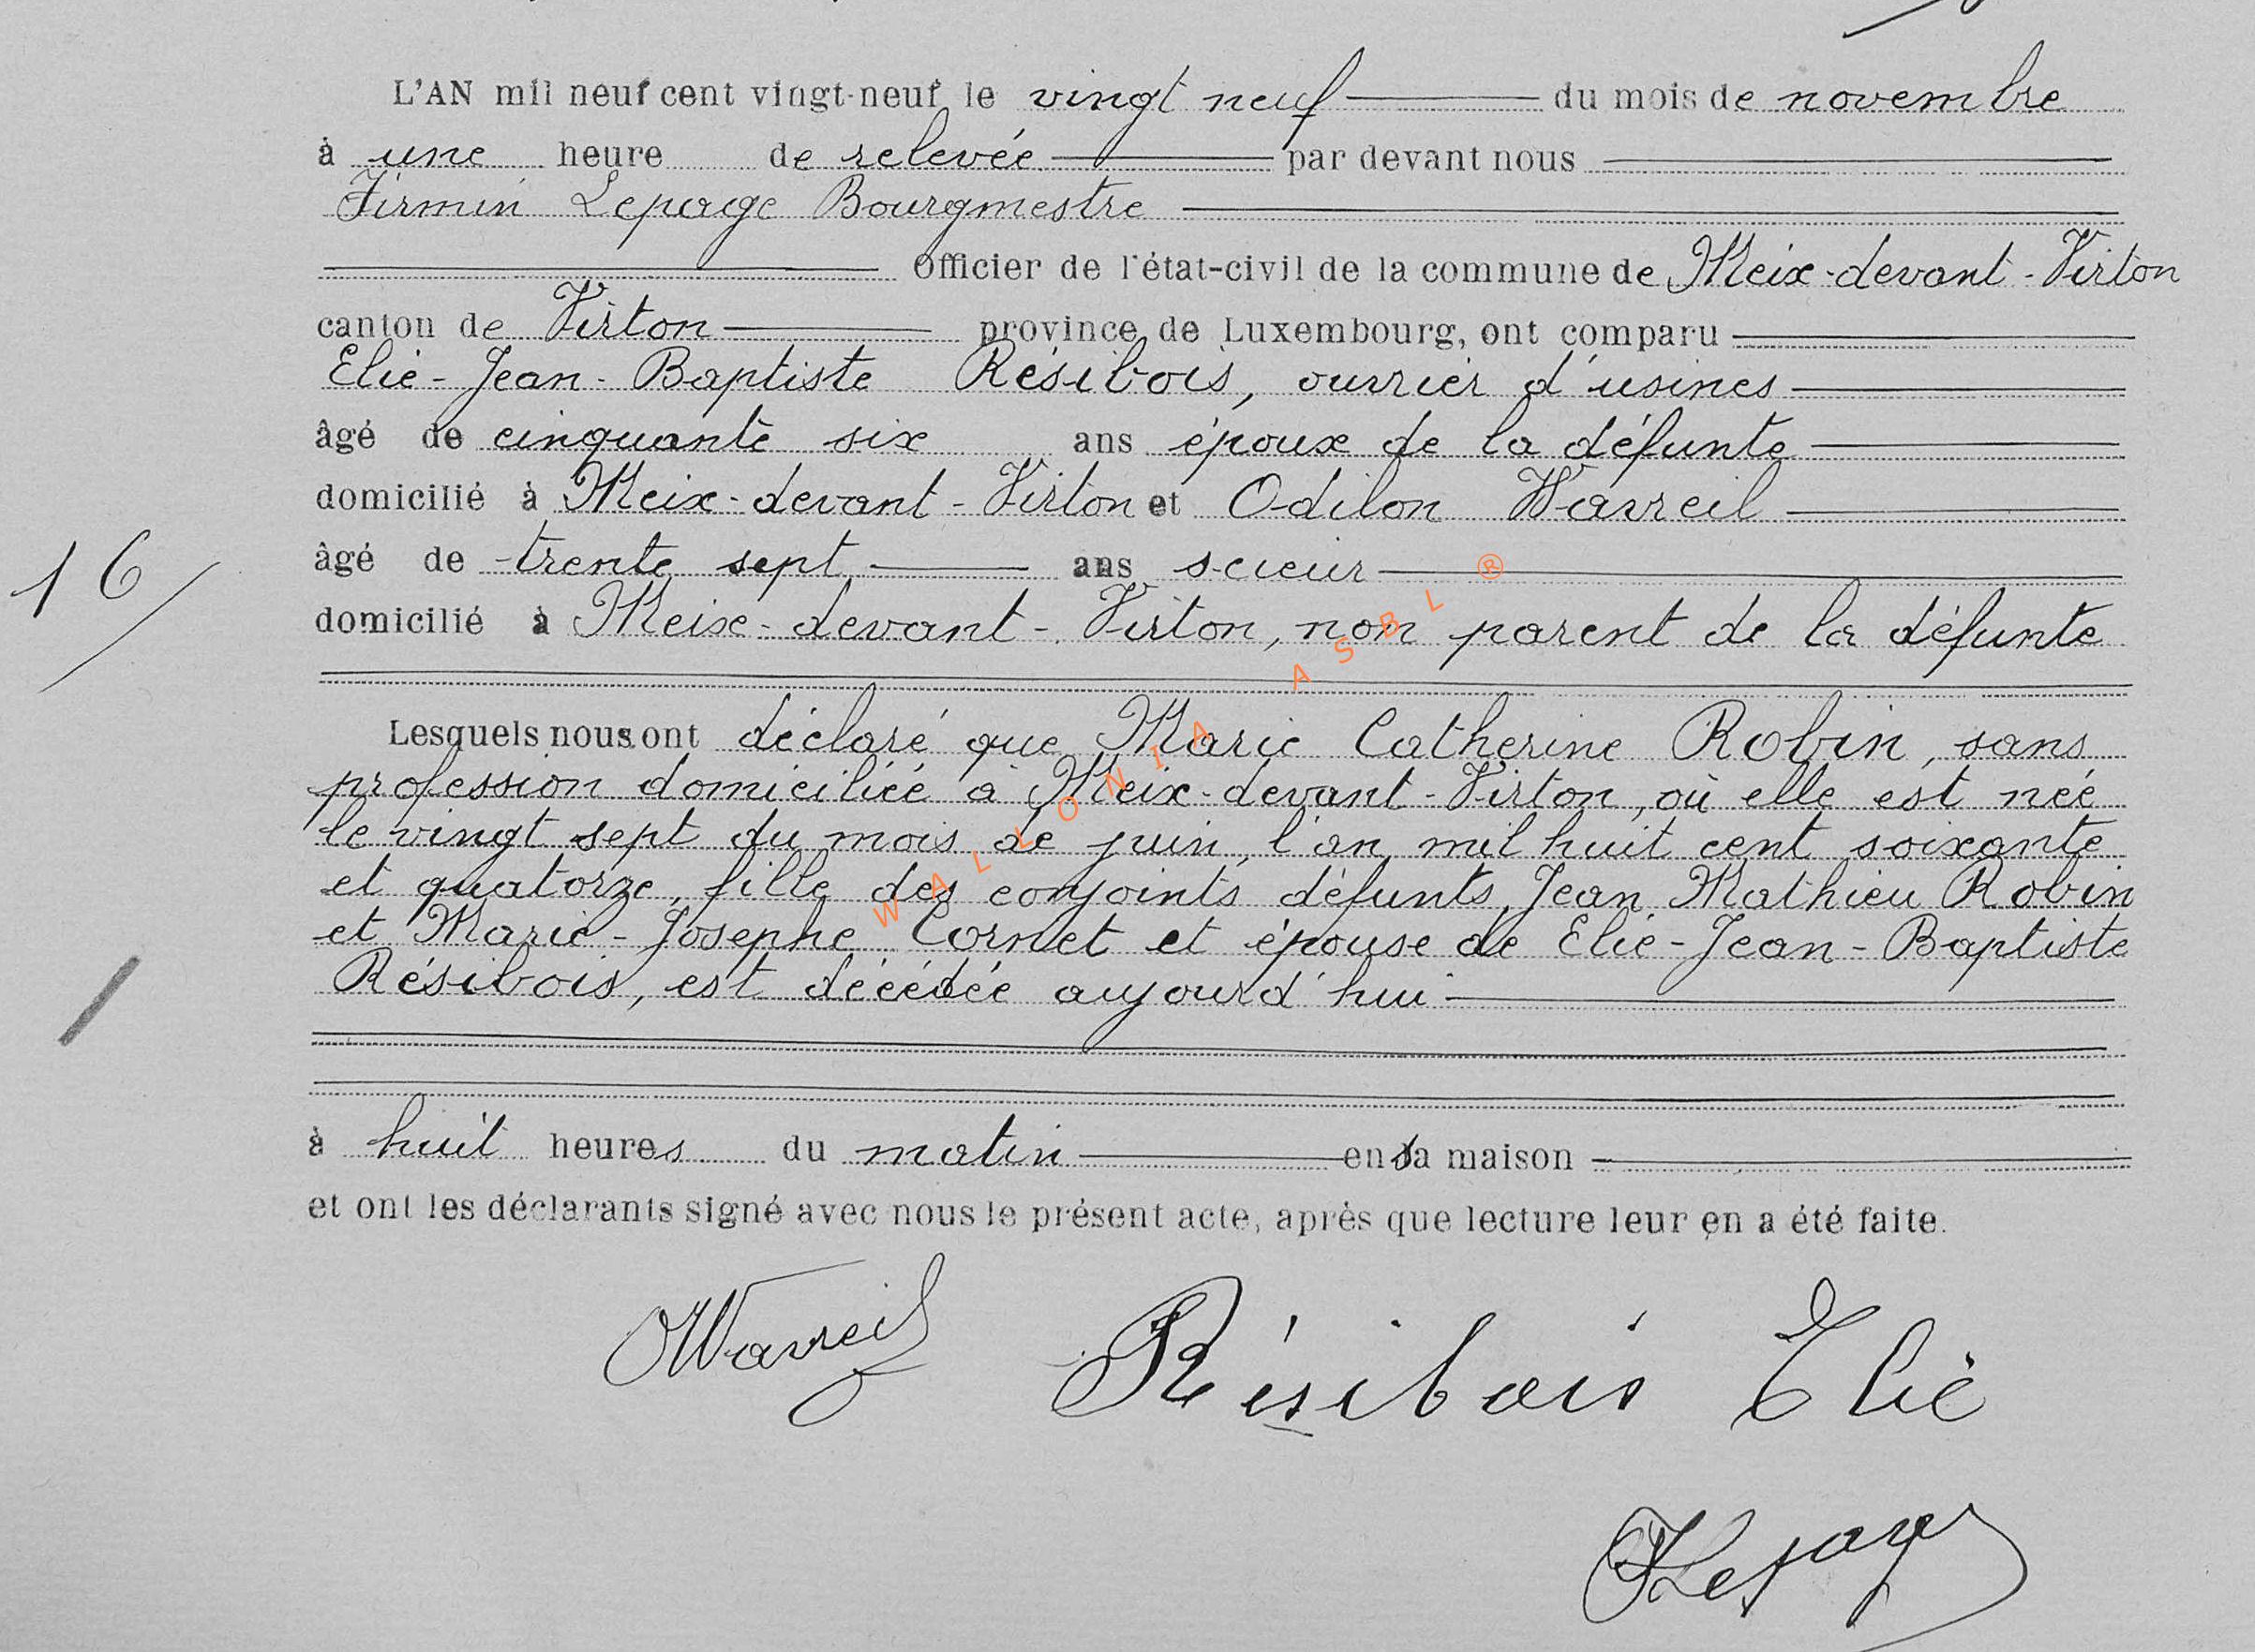 L'AN mil neuf cent vingt-neuf le vingt neuf du mois de novembre
à une heure de relevée par devant nous
Firmin Lepage Bourgmestre
Officier de l'état-civil de la commune de Meix-devant-Virton
canton de Virton province de Luxembourg, ont comparu
Elie-Jean-Baptiste Résibois, ouvrier d'usines
âgé de cinquante six ans époux de la défunte
domicilié à Meix-devant-Virton et Odilon Wavreil
âgé de trente sept ans scieur
16
domicilié à Meix-devant-Virton, non parent de la défunte
Lesquels nous ont déclaré que Marie Catherine Robin, sans
profession domiciliée à Meix-devant-Virton, où elle est née
le vingt sept du mois de juin, l'an mil huit cent soixante
et quatorze, fille des conjoints défunts, Jean Mathieu Robin
et Marie-Josephe Cornet et épouse de Elie-Jean-Baptiste
Résibois, est décédée aujourd'hui
à huit heures du matin en sa maison
et ont les déclarants signé avec nous le présent acte, après que lecture leur en a été faite.
OWavreil Résibois Elie
FLepage
WALLONIA ASBL ®